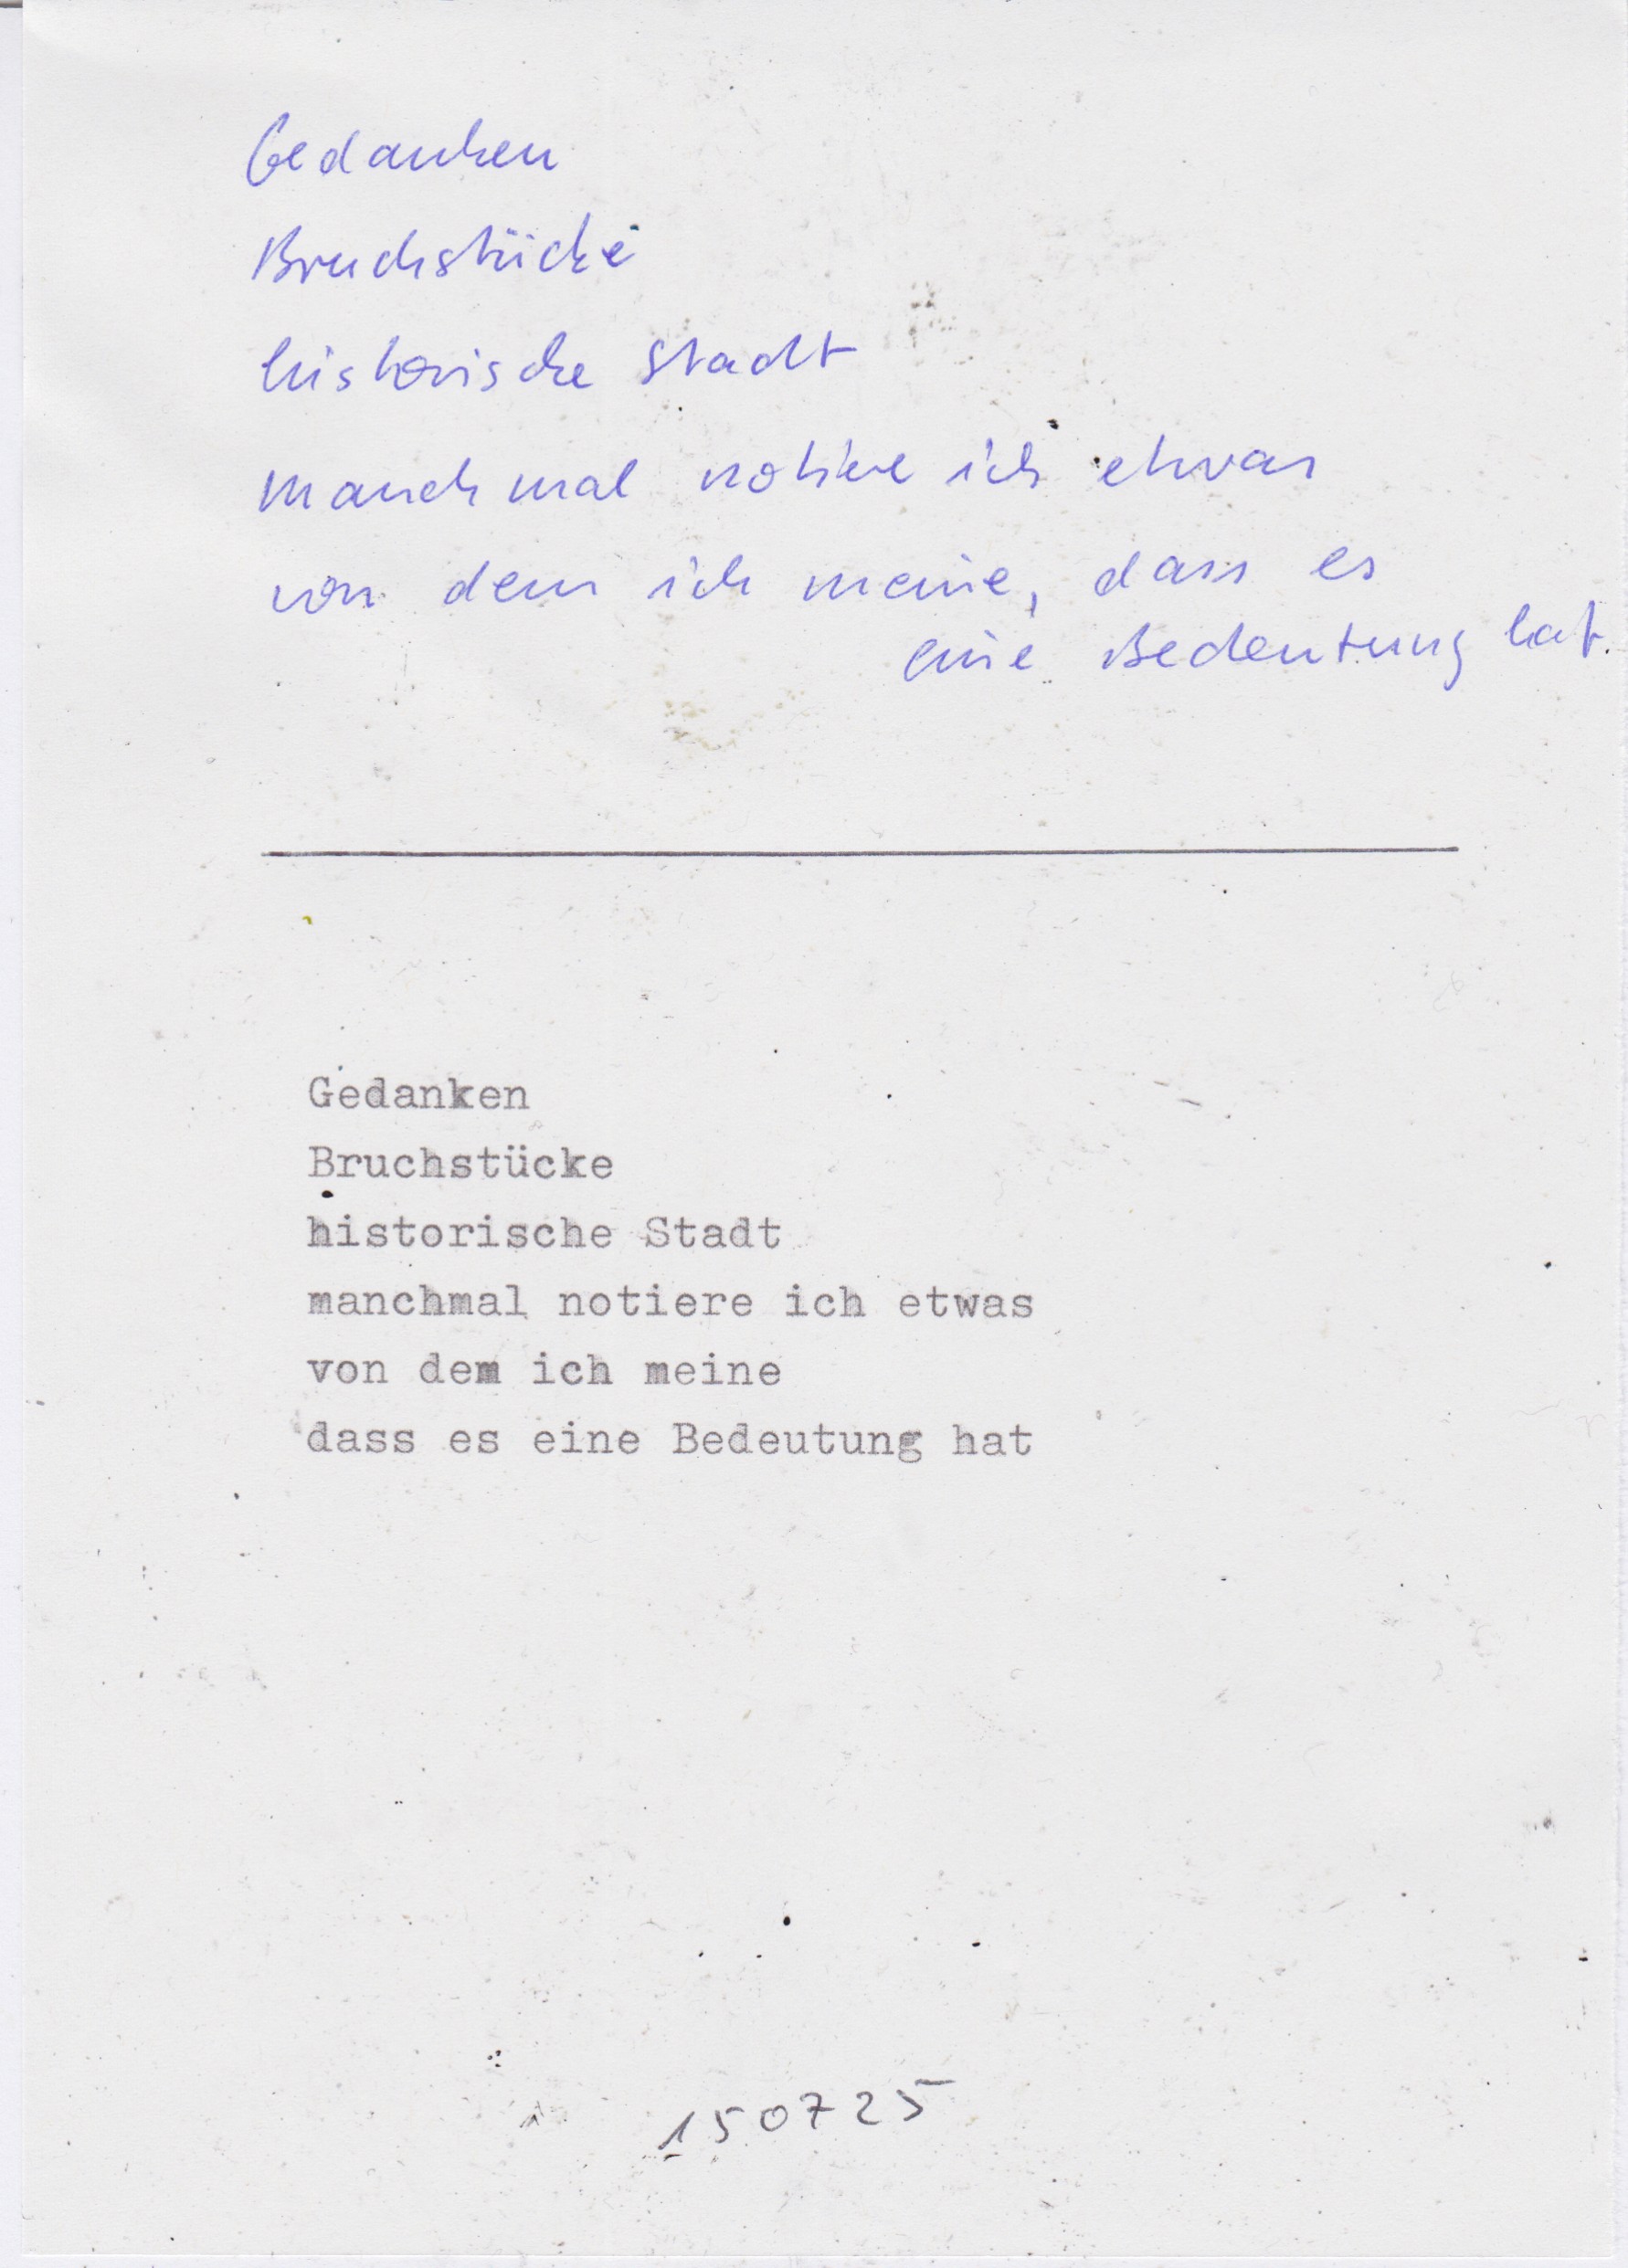 Gedanken
Bruchstücke
historische Stadt
manchmal notiere ich etwas
von dem ich meine, dass es
eine Bedeutung hat.
Gedanken
Bruchstücke
historische Stadt
manchmal notiere ich etwas
von dem ich meine
dass es eine Bedeutung hat
150725